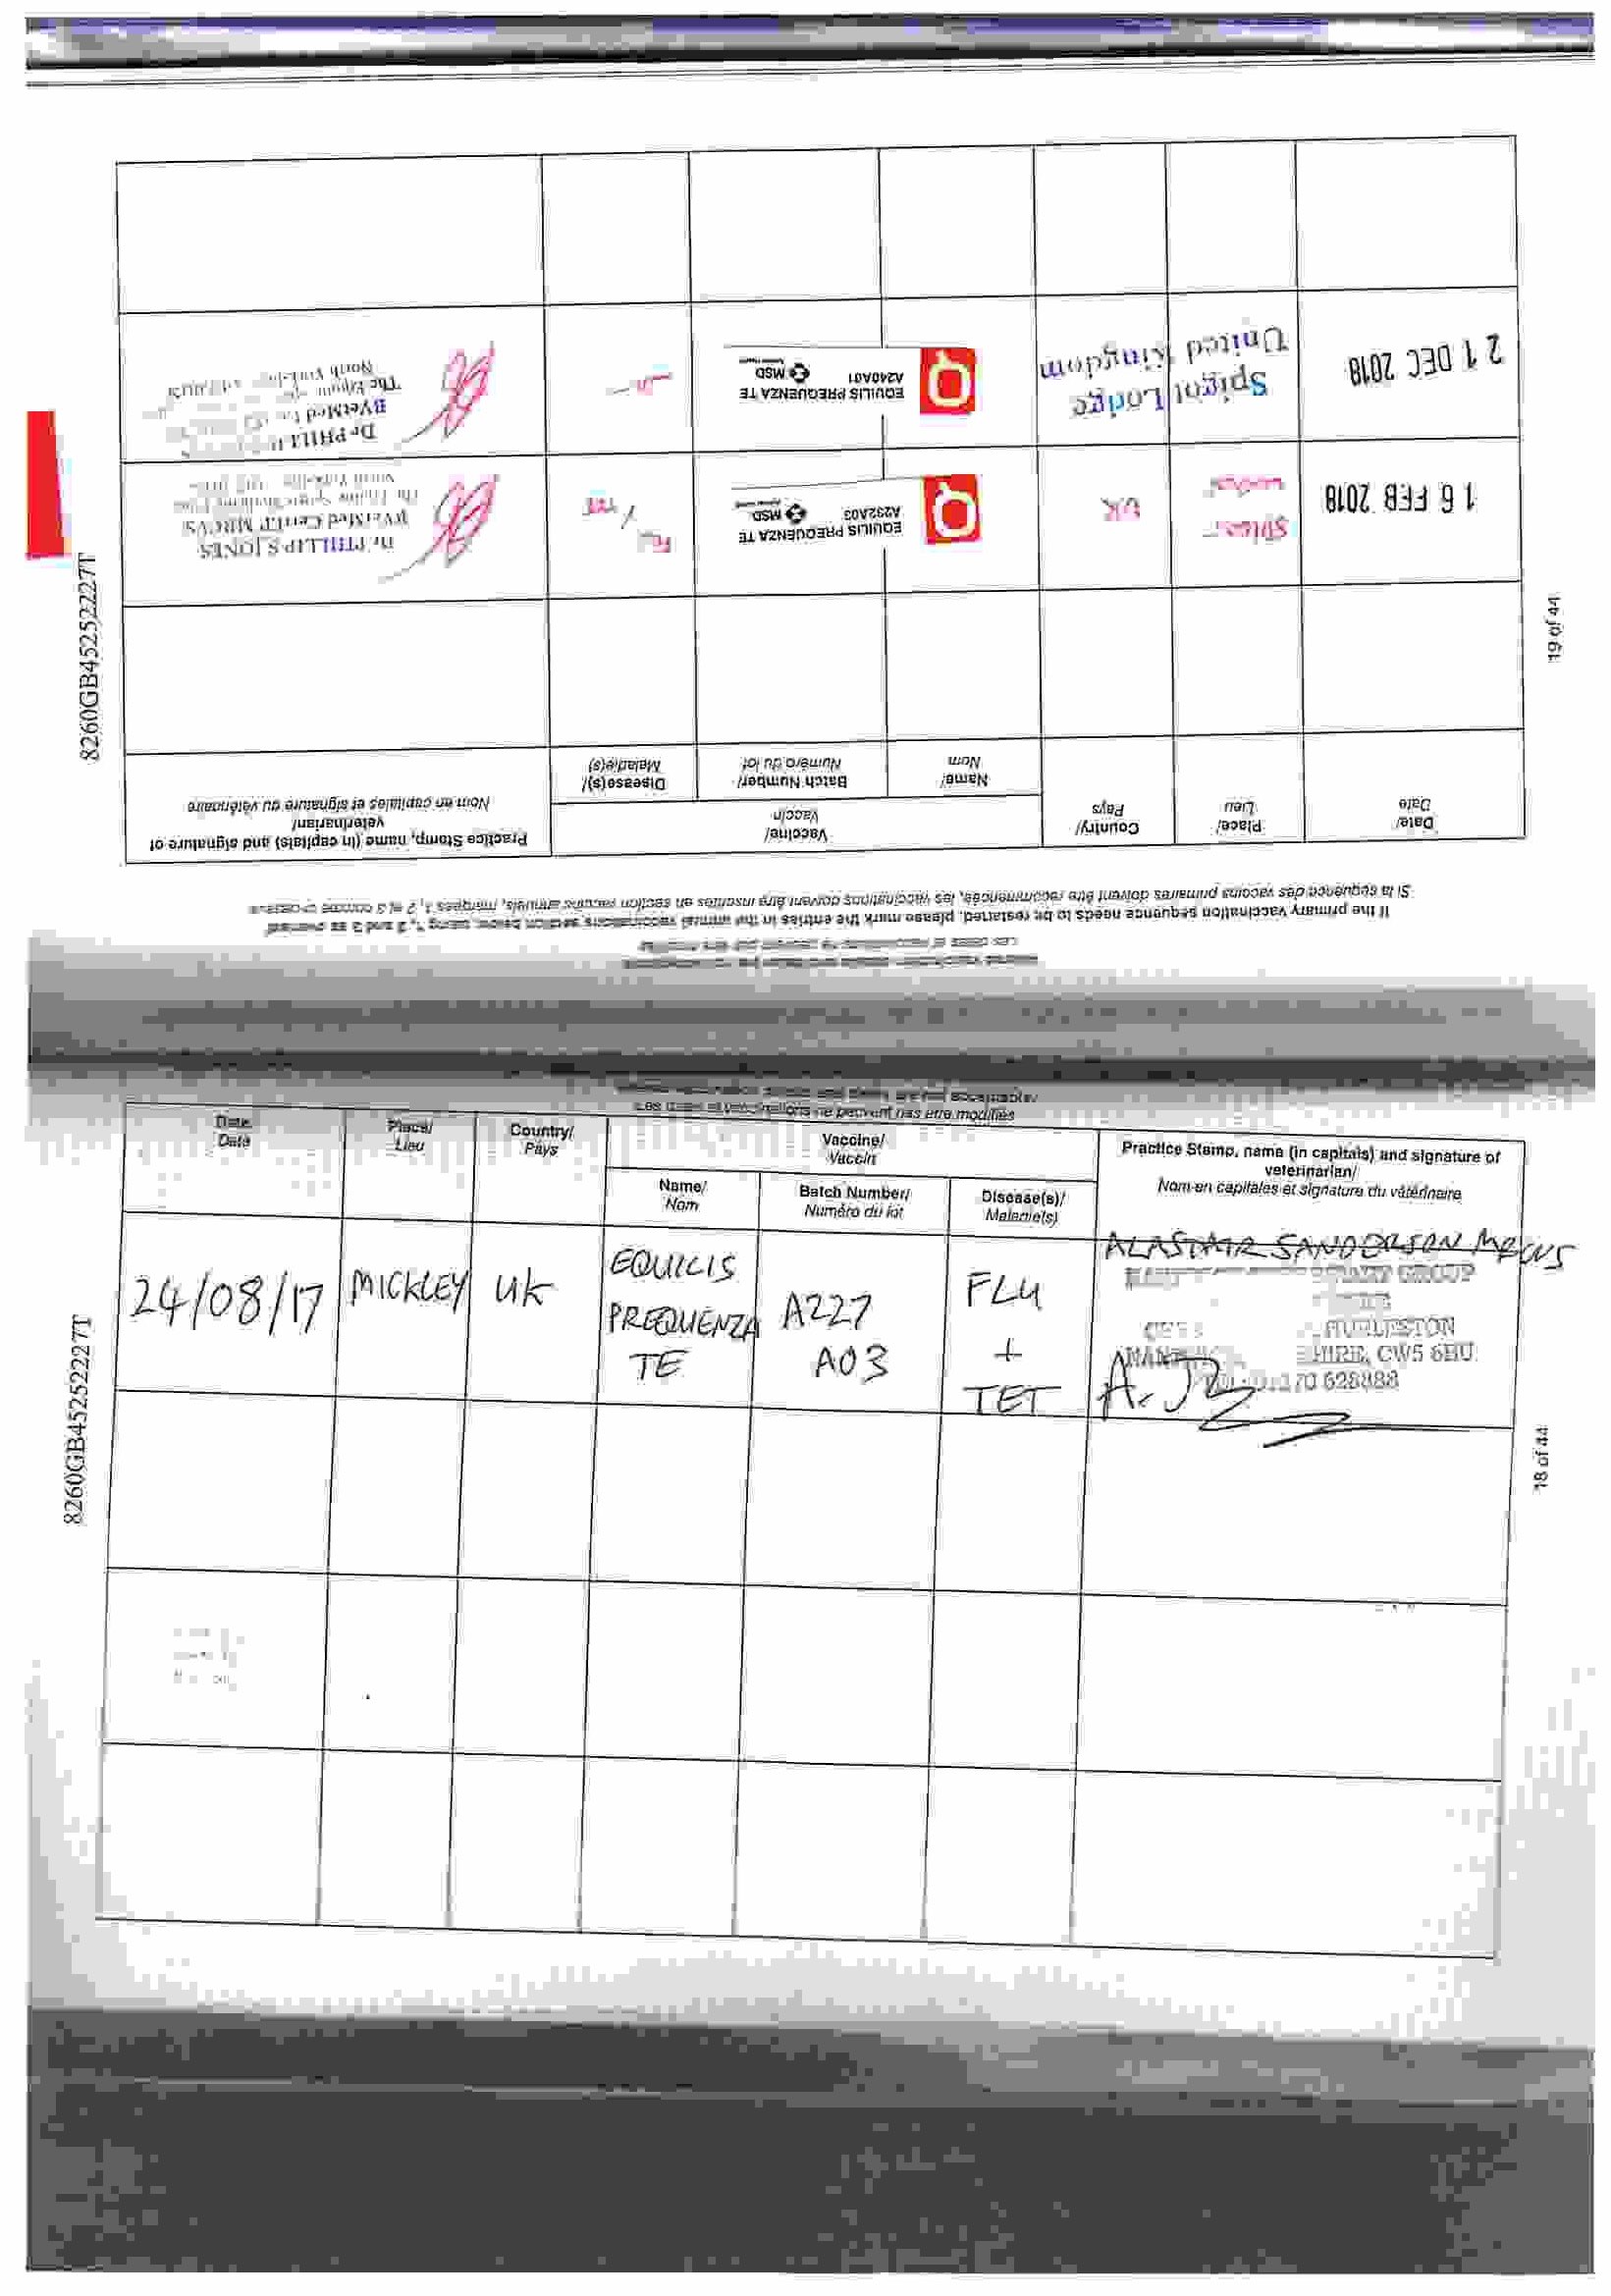 8260GB45252227T
19 of 44
If the primary vaccination sequence needs to be restarted, please mark the entries in the annual vaccinations section below, using 1, 2 and 3 as
Si la séquence des vaccins primaires doivent être recommencée, les vaccinations doivent être inscrites en section vaccins annuels, marquées 1, 2 et 3 comme
Date/
Date
Place/
Lieu
Country/
Pays
Vaccine/
Vaccin
Name/
Nom
Batch Number/
Numéro du lot
Disease(s)/
Maladie(s)
Practice Stamp, name (in capitals) and signature of
veterinarian/
Nom en capitales et signature du vétérinaire
16 FEB 2018
UK
EQUILIS PREQUENZA TE
A232A03
MSD
Dr PHILLIP S JONES
BVetMed CertEP MRCVS
21 DEC 2018
Spigot Lodge
United Kingdom
EQUILIS PREQUENZA TE
A240A01
MSD
BVetMed
North
8260GB45252227T
18 of 44
Les dates et vaccinations ne peuvent pas être modifiés
Date
Date
Place/
Lieu
Country/
Pays
Vaccine/
Vaccin
Name/
Nom
Batch Number/
Numéro du lot
Disease(s)/
Maladie(s)
Practice Stamp, name (in capitals) and signature of
veterinarian/
Nom en capitales et signature du vétérinaire
24/08/17
MICKLEY
UK
EQUILIS
PREQUENZA
TE
A227
A03
FLU
+
TET
ALASTAIR SANDERSON MRCVS
GROUP
HURLESTON
CW5 6BU
628888